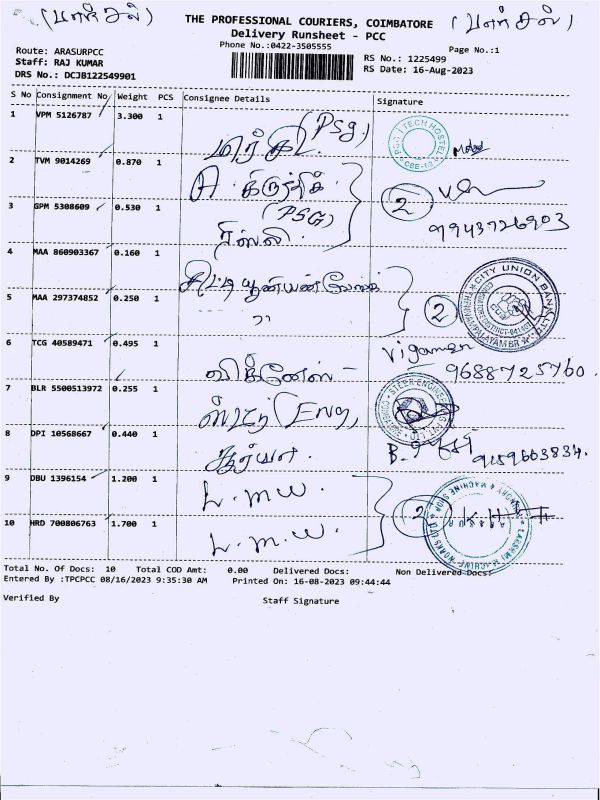 (பார்சல்) THE PROFESSIONAL COURIERS, COIMBATORE (பார்சல்)
Delivery Runsheet - PCC
Phone No.:0422-3505555
Page No.:1
Route: ARASURPCC
Staff: RAJ KUMAR
DRS No.: DCJB122549901
RS No.: 1225499
RS Date: 16-Aug-2023
S No Consignment No Weight PCS Consignee Details Signature
1 VPM 5126787 3.300 1 (PSG)
2 TVM 9014269 0.870 1
3 GPM 5308609 0.530 1 (PSG) 2 9943726903
4 MAA 860903367 0.160 1 சிட்டி யூனியன்
5 MAA 297374852 0.250 1 " 2 CITY UNION BANK LTD
6 TCG 40589471 0.495 1 விக்னேஸ் 9688725760
7 BLR 5500513972 0.255 1 ஸ்டார் Eng,
8 DPI 10568667 0.440 1 சூர்யா 9159663834.
9 DBU 1396154 1.200 1 L.M.W.
10 HRD 700806763 1.700 1 L.M.W. 2
Total No. Of Docs: 10 Total COD Amt: 0.00 Delivered Docs: Non Delivered Docs:
Entered By :TPCPCC 08/16/2023 9:35:30 AM Printed On: 16-08-2023 09:44:44
Verified By Staff Signature